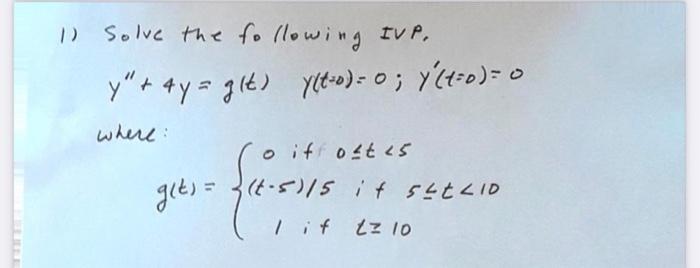 1) Solve the following IVP.
y" + 4y = g(t) y(t=0)=0; y'(t=0)=0
where:
0 if 0≤t<5
g(t) = { (t-5)/5 if 5≤t<10
1 if t≥10